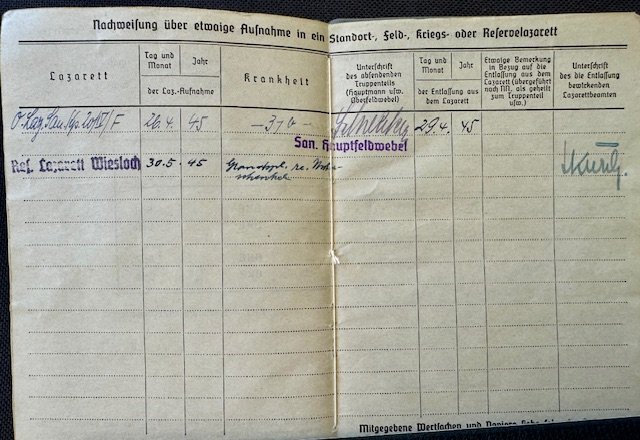 Nachweisung über etwaige Aufnahme in ein Standort-, Feld-, Kriegs- oder Reservelazarett
Lazarett
Tag und Monat
Jahr
der Laz.-Aufnahme
Krankheit
Unterschrift des absendenden Truppenteils (Hauptmann usw. Oberfeldwebel)
Tag und Monat
Jahr
der Entlassung aus dem Lazarett
Etwaige Bemerkung in Bezug auf die Entlassung aus dem Lazarett (übergeführt nach NN. als geheilt zum Truppenteil usw.)
Unterschrift des die Entlassung bewirkenden Lazarettbeamten
26.4. 45 29.4. 45
San. Hauptfeldwebel
Res. Lazarett Wiesloch 30.5. 45 re.
Mitgegebene Wertsachen und Papiere